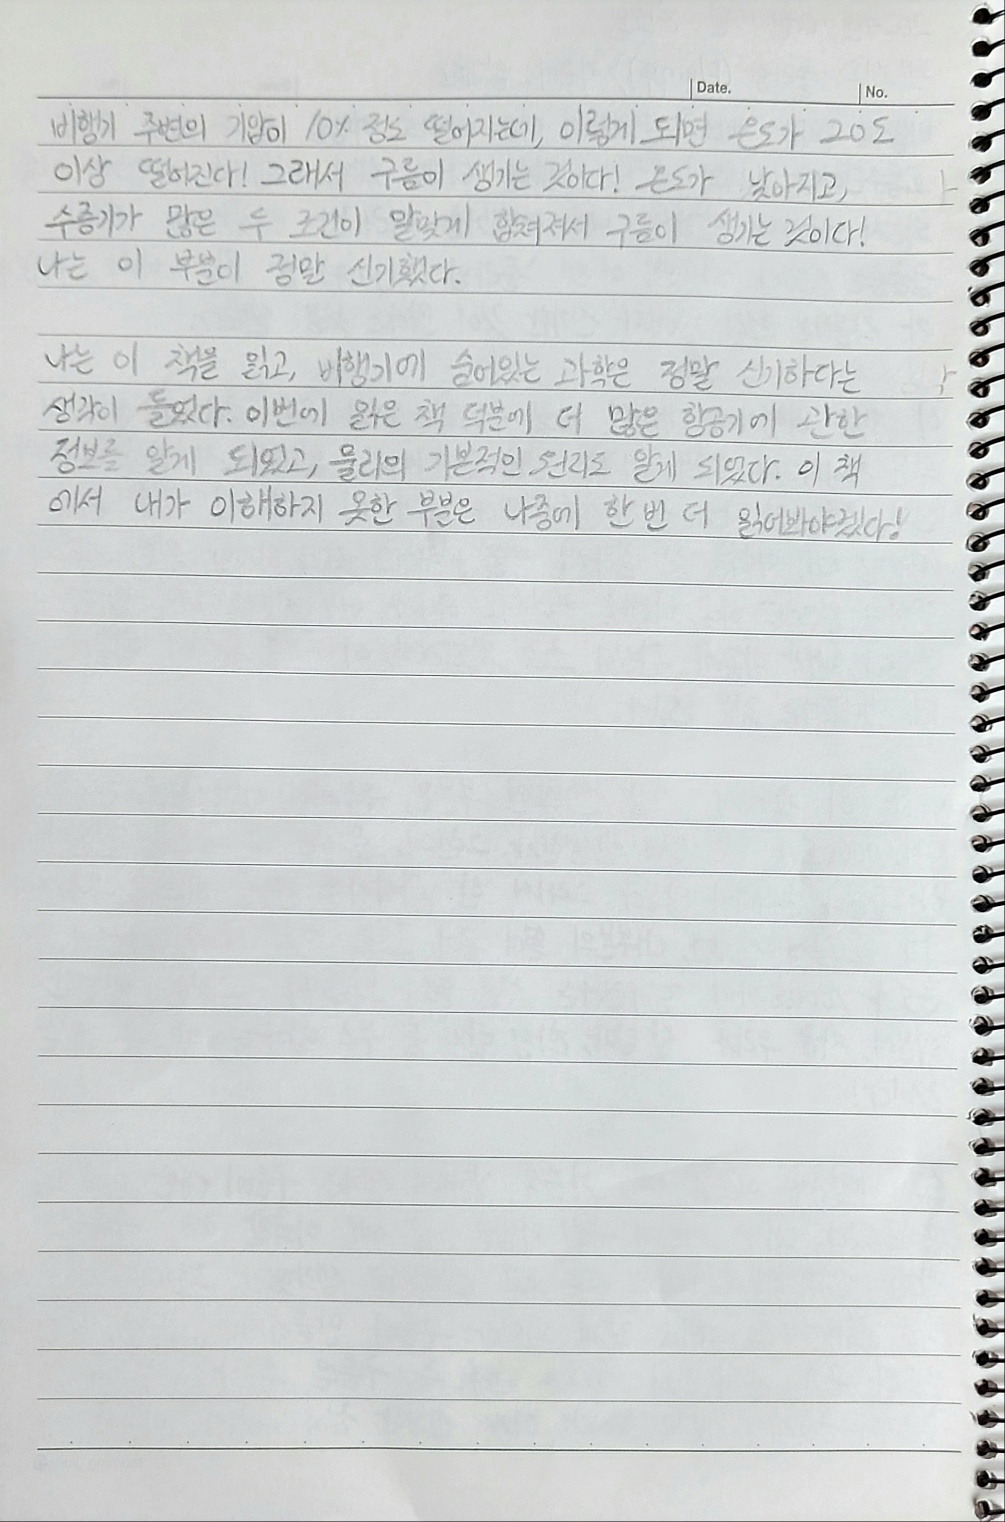 Date.
No.
비행기 주변의 기압이 10% 정도 떨어지는데, 이렇게 되면 온도가 20도
이상 떨어진다! 그래서 구름이 생기는 것이다! 온도가 낮아지고,
수증기가 많은 두 조건이 알맞게 합쳐져서 구름이 생기는 것이다!
나는 이 부분이 정말 신기했다.
나는 이 책을 읽고, 비행기에 숨어있는 과학은 정말 신기하다는
생각이 들었다. 이번에 읽은 책 덕분에 더 많은 항공기에 관한
정보를 알게 되었고, 물리의 기본적인 원리도 알게 되었다. 이 책
에서 내가 이해하지 못한 부분은 나중에 한 번 더 읽어봐야겠다!